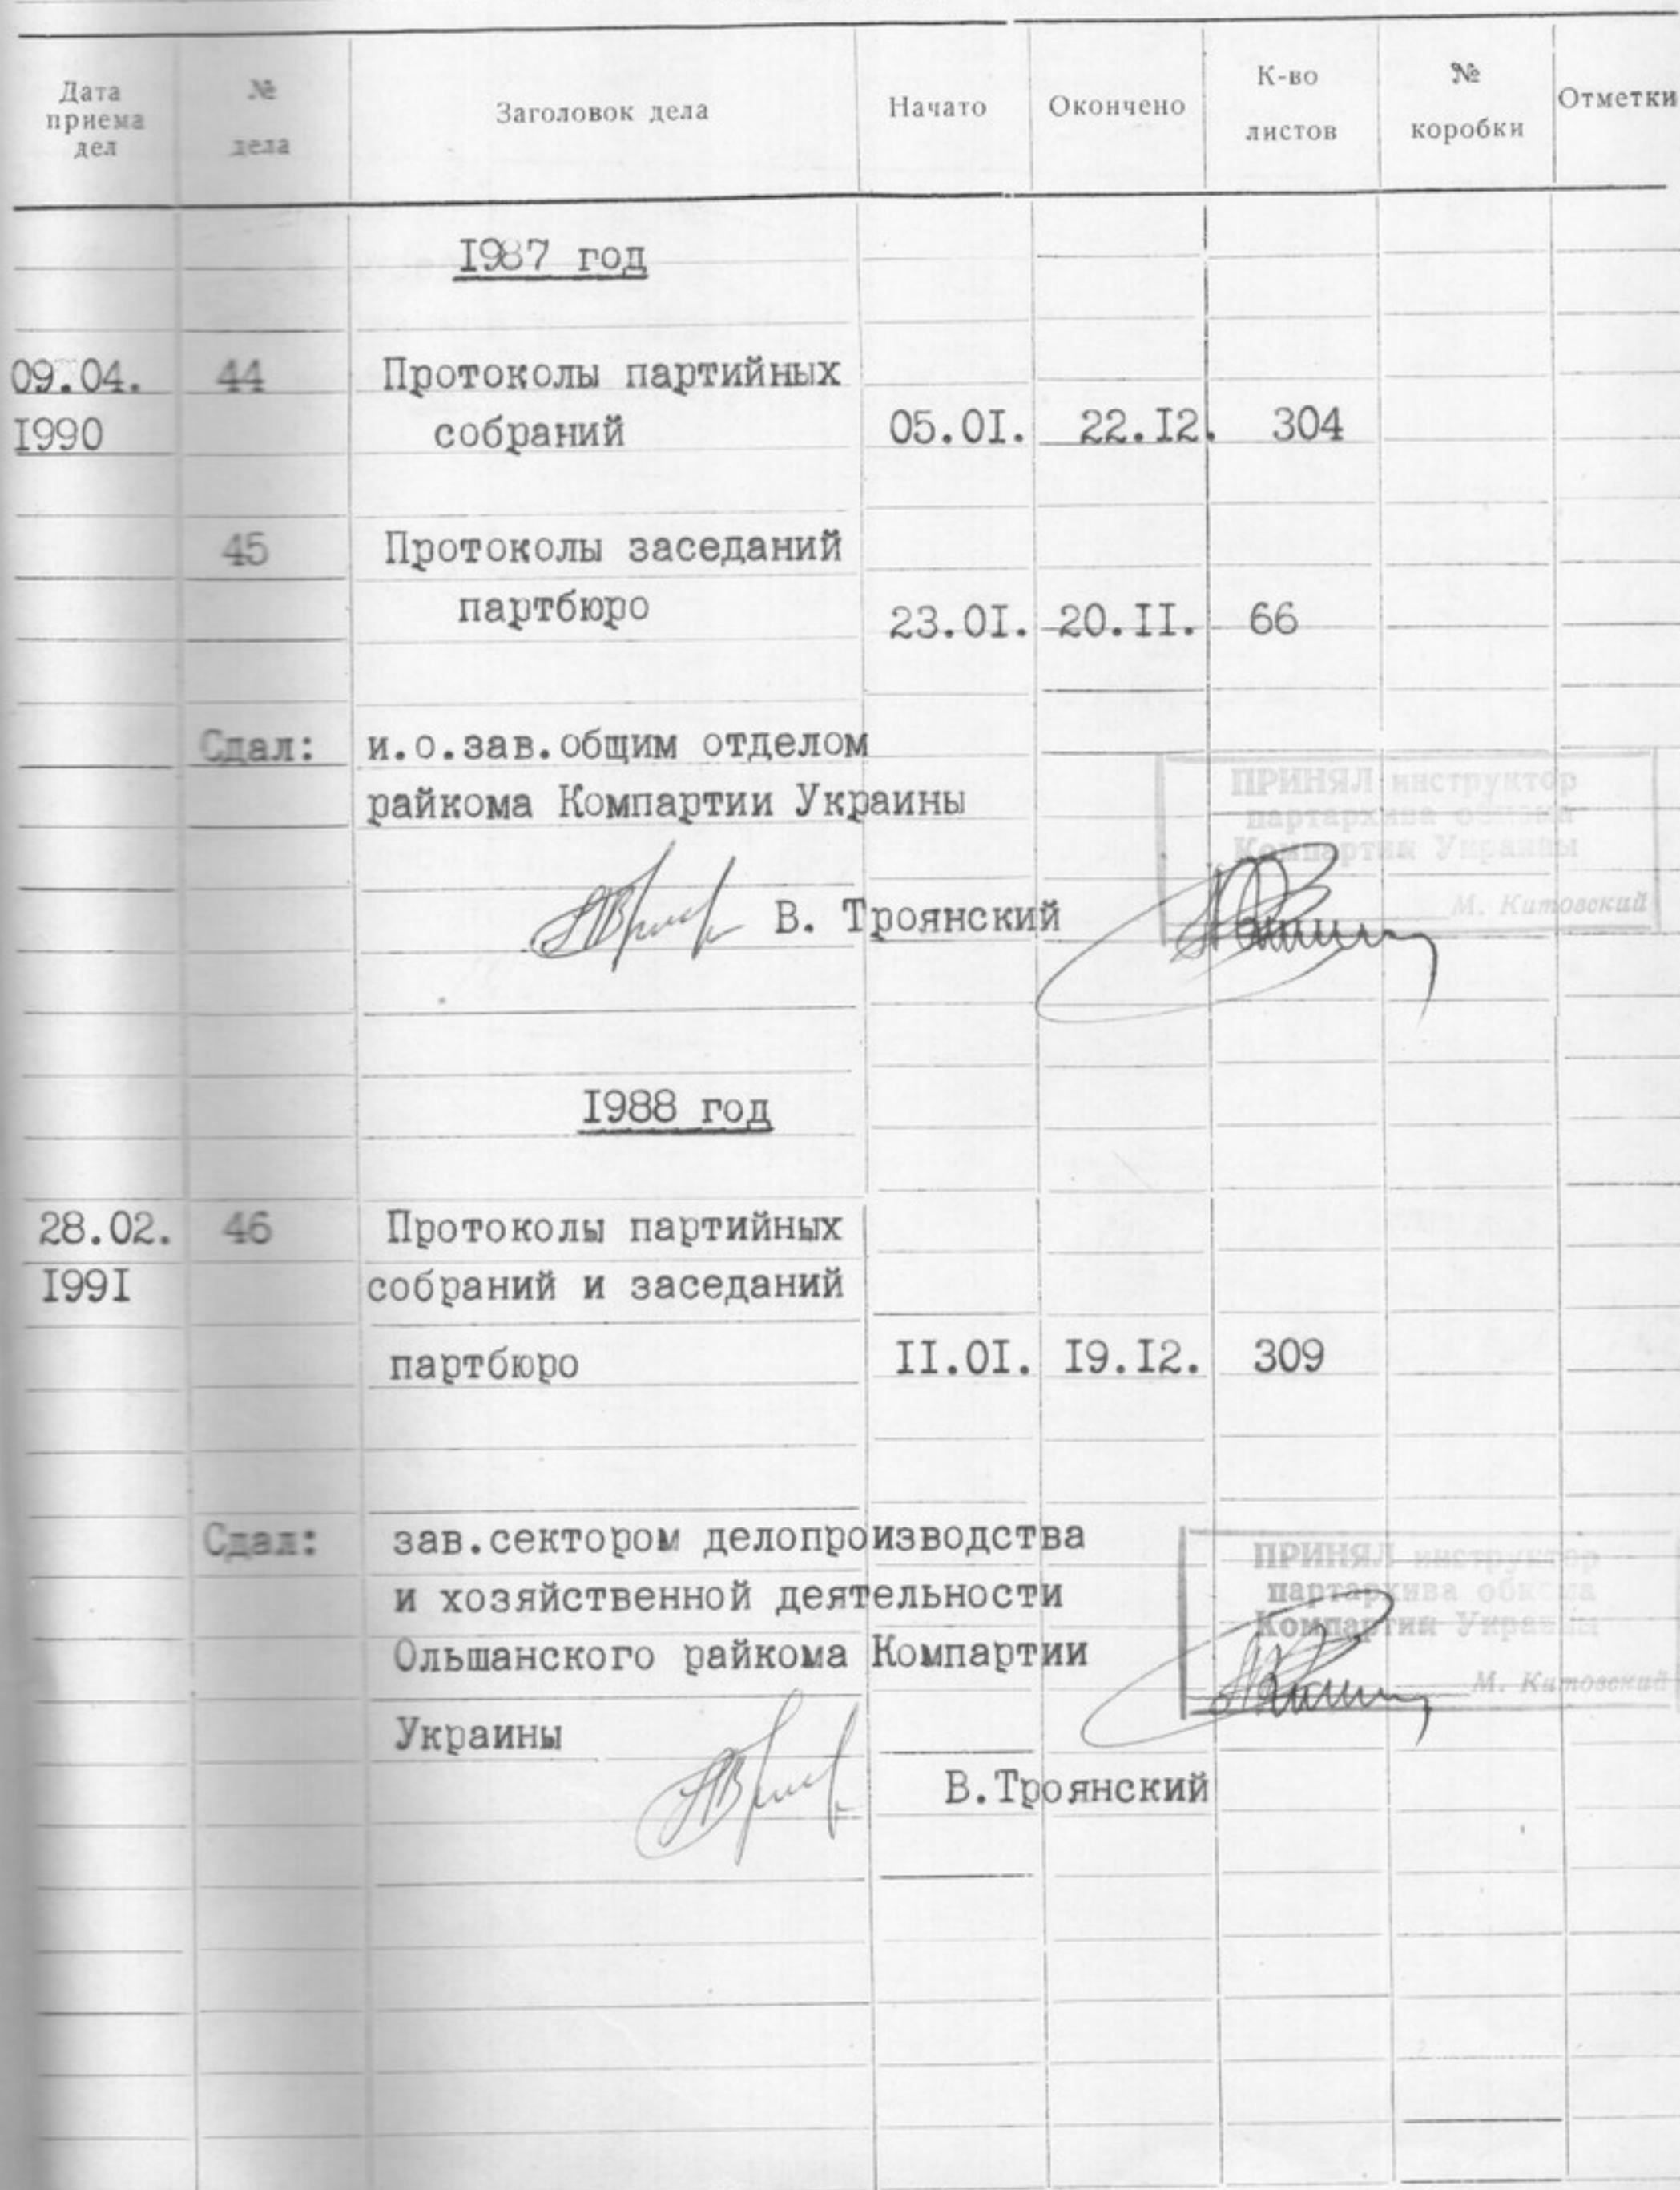 Дата приема дел № дела Заголовок дела Начато Окончено К-во листов № коробки Отметки
I987 год
09.04. 44 Протоколы партийных
I990 собраний 05.0I. 22.I2. 304
45 Протоколы заседаний
партбюро 23.0I. 20.II. 66
Сдал: и.о.зав.общим отделом
райкома Компартии Украины
ПРИНЯЛ инструктор
партархива обкома
Компартии Украины
М. Китовский
В. Троянский
I988 год
28.02. 46 Протоколы партийных
I99I собраний и заседаний
партбюро II.0I. I9.I2. 309
Сдал: зав.сектором делопроизводства
и хозяйственной деятельности
Ольшанского райкома Компартии
Украины
ПРИНЯЛ инструктор
партархива обкома
Компартии Украины
М. Китовский
В.Троянский